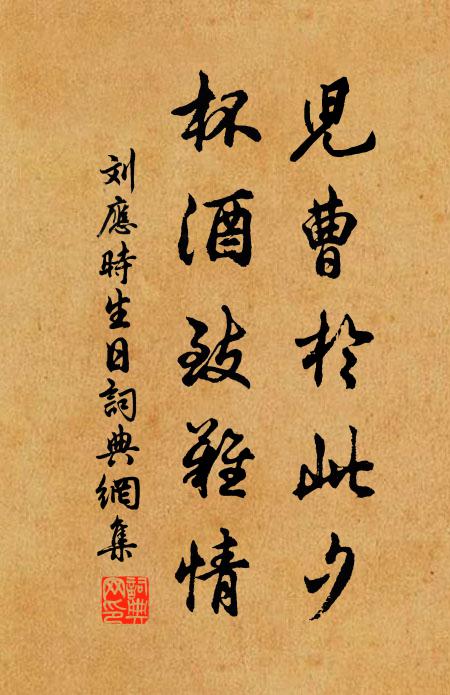 兒曹於此夕
杯酒致難情
刘應時生日詞典網集
詞典网印